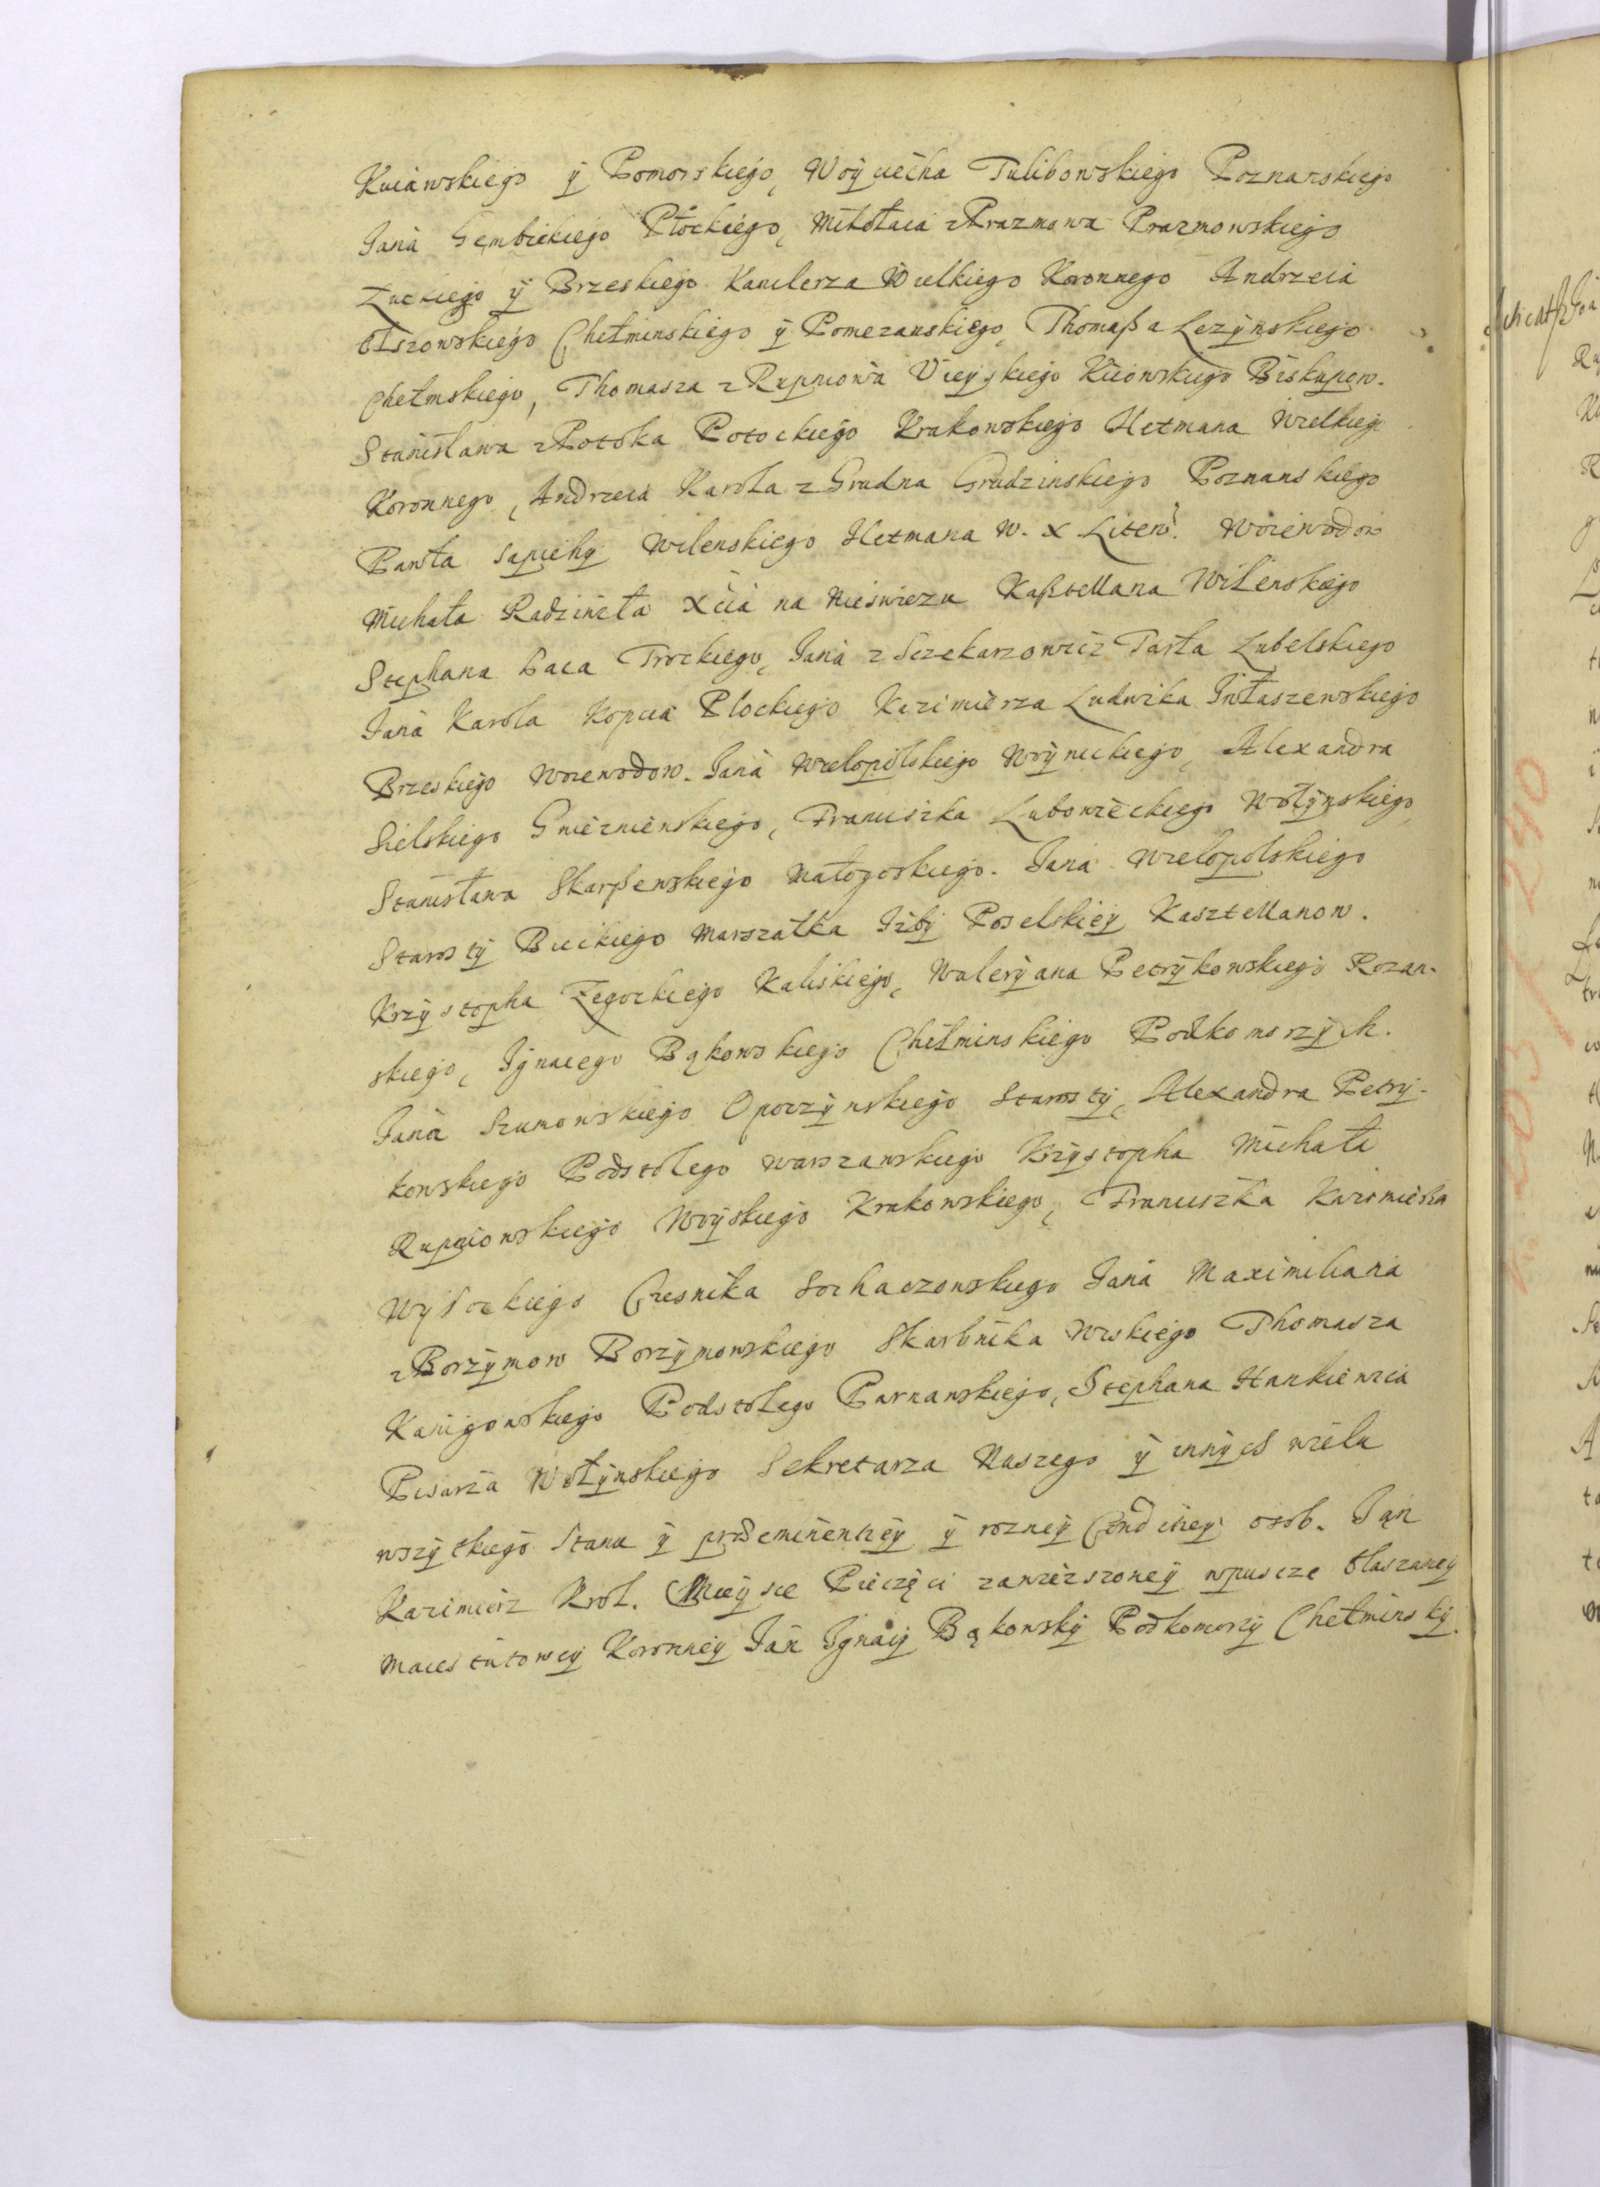 Kuiawskiego ÿ Pomorskiego, Woÿciecha Tulibowskiego Poznanskiego
Jana Gembickiego Płockiego, Mikołaia z Prazmowa Prazmowskiego
Łuckiego ÿ Brzeskiego Kanclerza Wielkiego Koronnego Andrzeia
Olszowskiego Chełminskiego ÿ Pomezanskiego, Thomaßa Lezÿnskiego
Chełmskiego, Thomasza z Rupniowa Uieÿskiego Kiiowskiego Biskupow.
Stanisława z Potoka Potockiego Krakowskiego Hetmana Wielkieg
Koronnego, Andrzeia Karola z Grudna Grudzinskiego Poznanskiego
Pawła Sapiehÿ Wilenskiego Hetmana W. X Litew. Woiewodow
Michała Radziwiła Xcia na Nieswiezu Kaßtellana Wilenskiego
Stephana Paca Trockiego, Jana z Sczekarzowicz Tarła Lubelskiego
Jana Karola Kopcia Plockiego Kazimierza Ludwika Jwłaszewskiego
Brzeskiego Woiewodow. Jana Wielopolskiego Woÿnickiego, Alexandra
Sielskiego Gnieznienskiego, Franciszka Lubowieckiego Wołÿnskiego,
Stanisława Skarßewskiego Małogoskiego. Jana Wielopolskiego
Starostÿ Bieckiego Marszałka Jzbÿ Poselskieÿ Kasztellanow.
Krzÿstopha Zegockiego Kaliskiego, Walerÿana Petrÿkowskiego Rozan-
skiego, Jgnacego Bąkowskiego Chełminskiego Podkomorzÿch.
Jana Szumowskiego Opoczÿnskiego Starostÿ, Alexandra Petrÿ-
kowskiego Podstolego Warszawskiego Krzÿstopha Michała
Rupniowskiego Woÿskiego Krakowskiego, Franciszka Kazimierza
Wÿsockiego Czesnika Sochaczowskiego Jana Maximiliana
z Borzÿmow Borzÿmowskiego Skarbnika Wiskiego Thomasza
Kanigowskiego Podstolego Parnawskiego, Stephana Hankiewica
Pisarza Wołÿnskiego Sekretarza Naszego ÿ innÿch wielu
wszÿtkiego Stanu ÿ praeeminentieÿ ÿ rozneÿ Conditieÿ osob. Jan
Kazimierz Krol. Mieÿsce Pieczęci zawieszoneÿ wpuscze blaszaneÿ
Maiestatoweÿ Koronneÿ Jan Jgnacÿ Bąkowskÿ Podkomorzÿ Chełminskÿ.